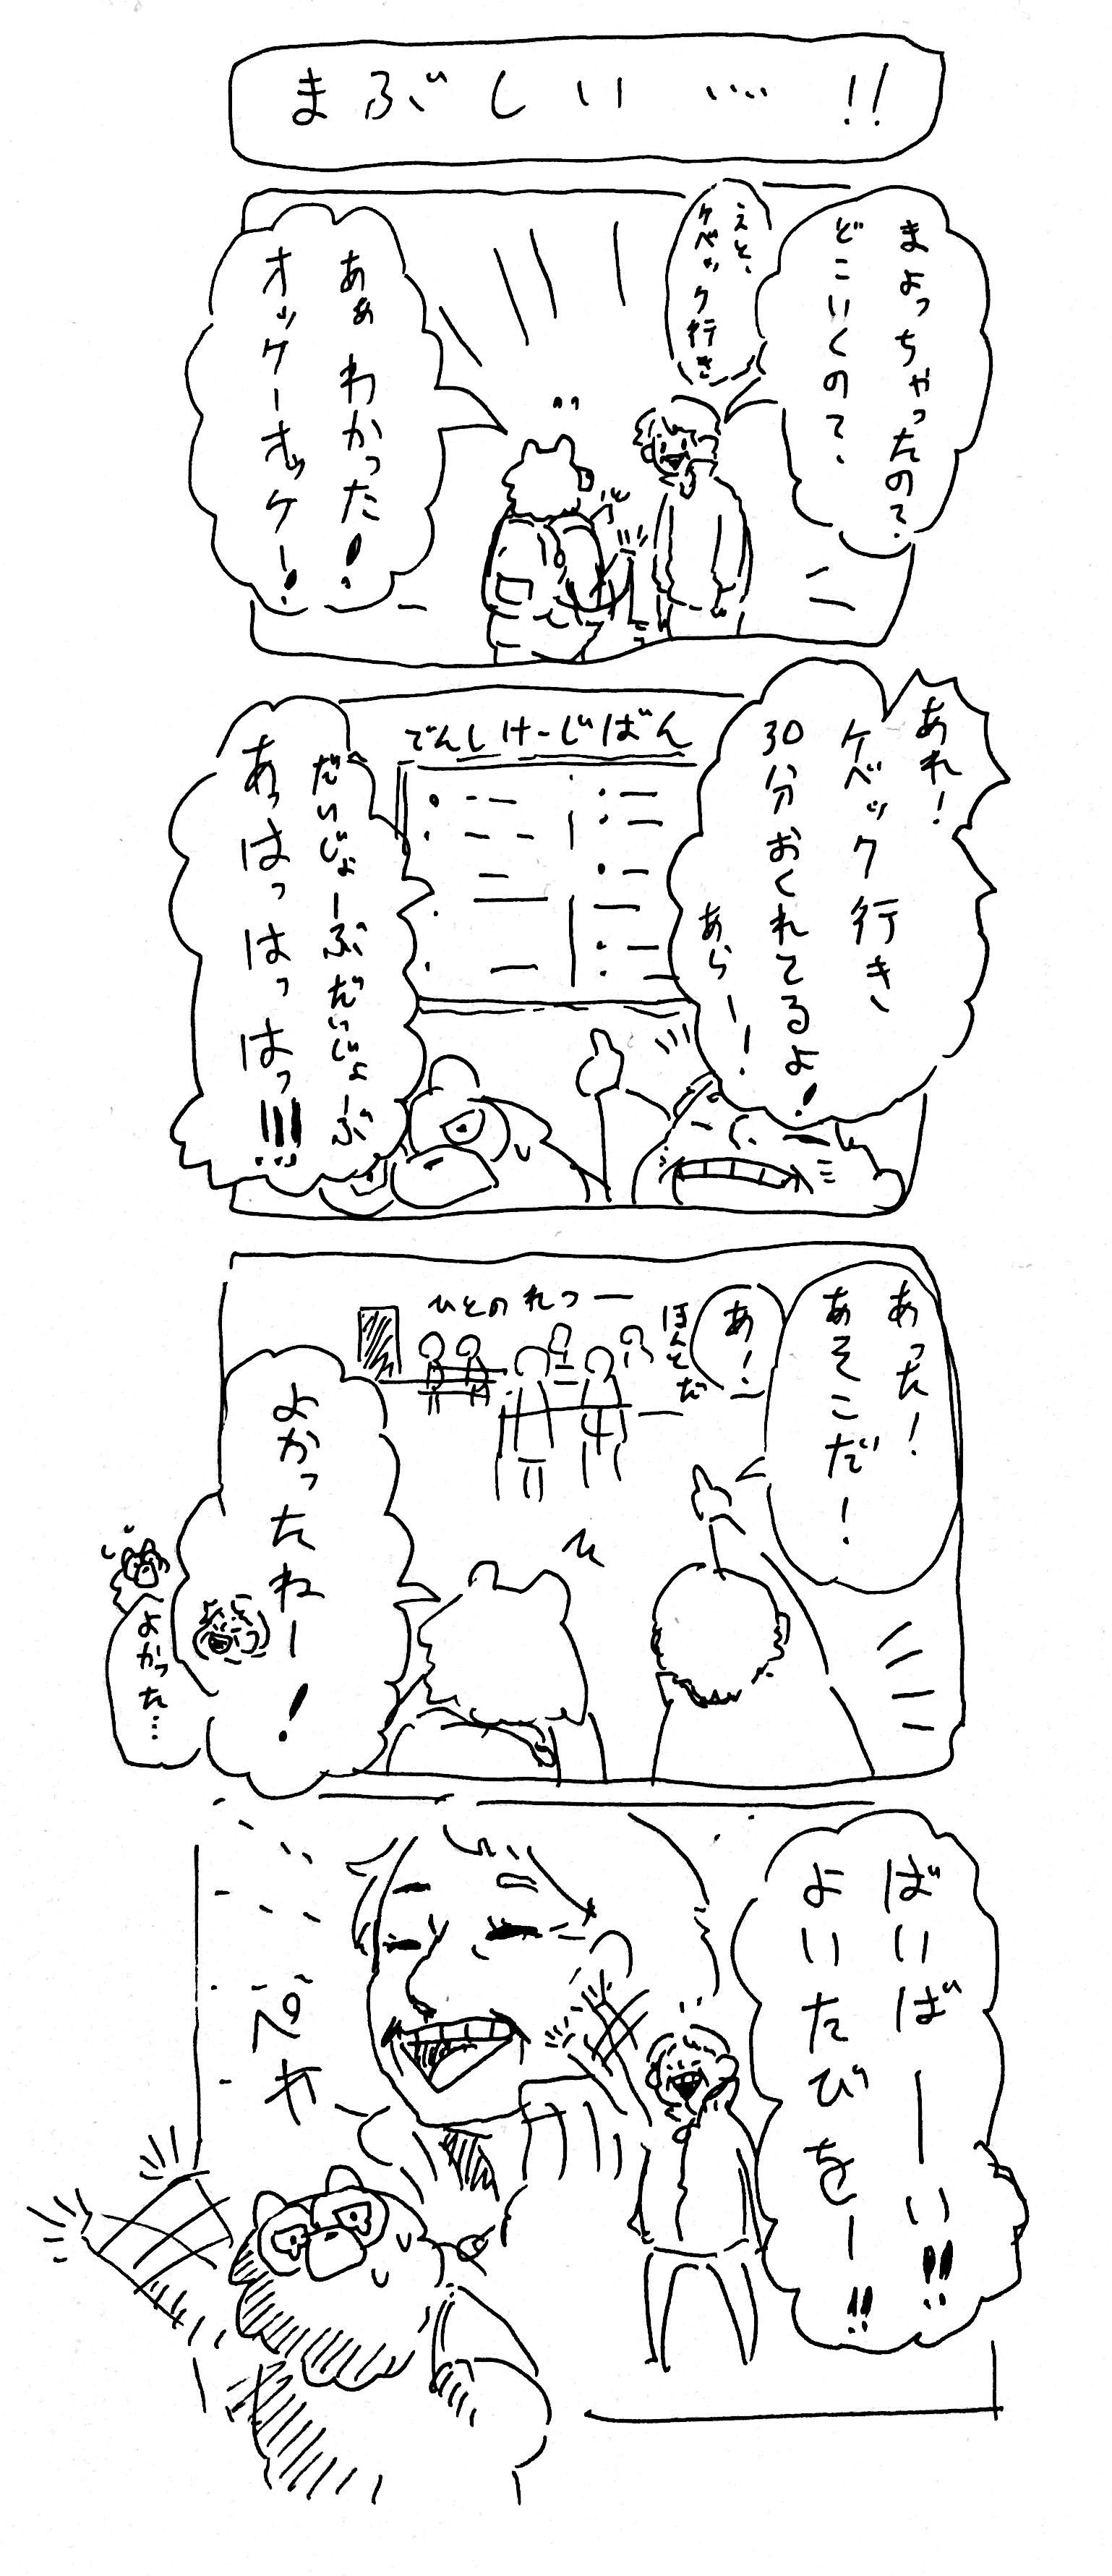 まぶしい……!!
まよっちゃったの?
どこいくの?
えと、
ケベック行き
あぁ わかった!
オッケーオッケー!
あれ!
ケベック行き
30分おくれてるよ!
あらー!
でんしけーじばん
だいじょーぶだいじょーぶ
あっはっはっはっ!!!
あった!
あそこだ!
あ!
ほんとだ
ひとのれつー
よかったねー!
よかった…
ばいばーーい!!
よいたびをー!!